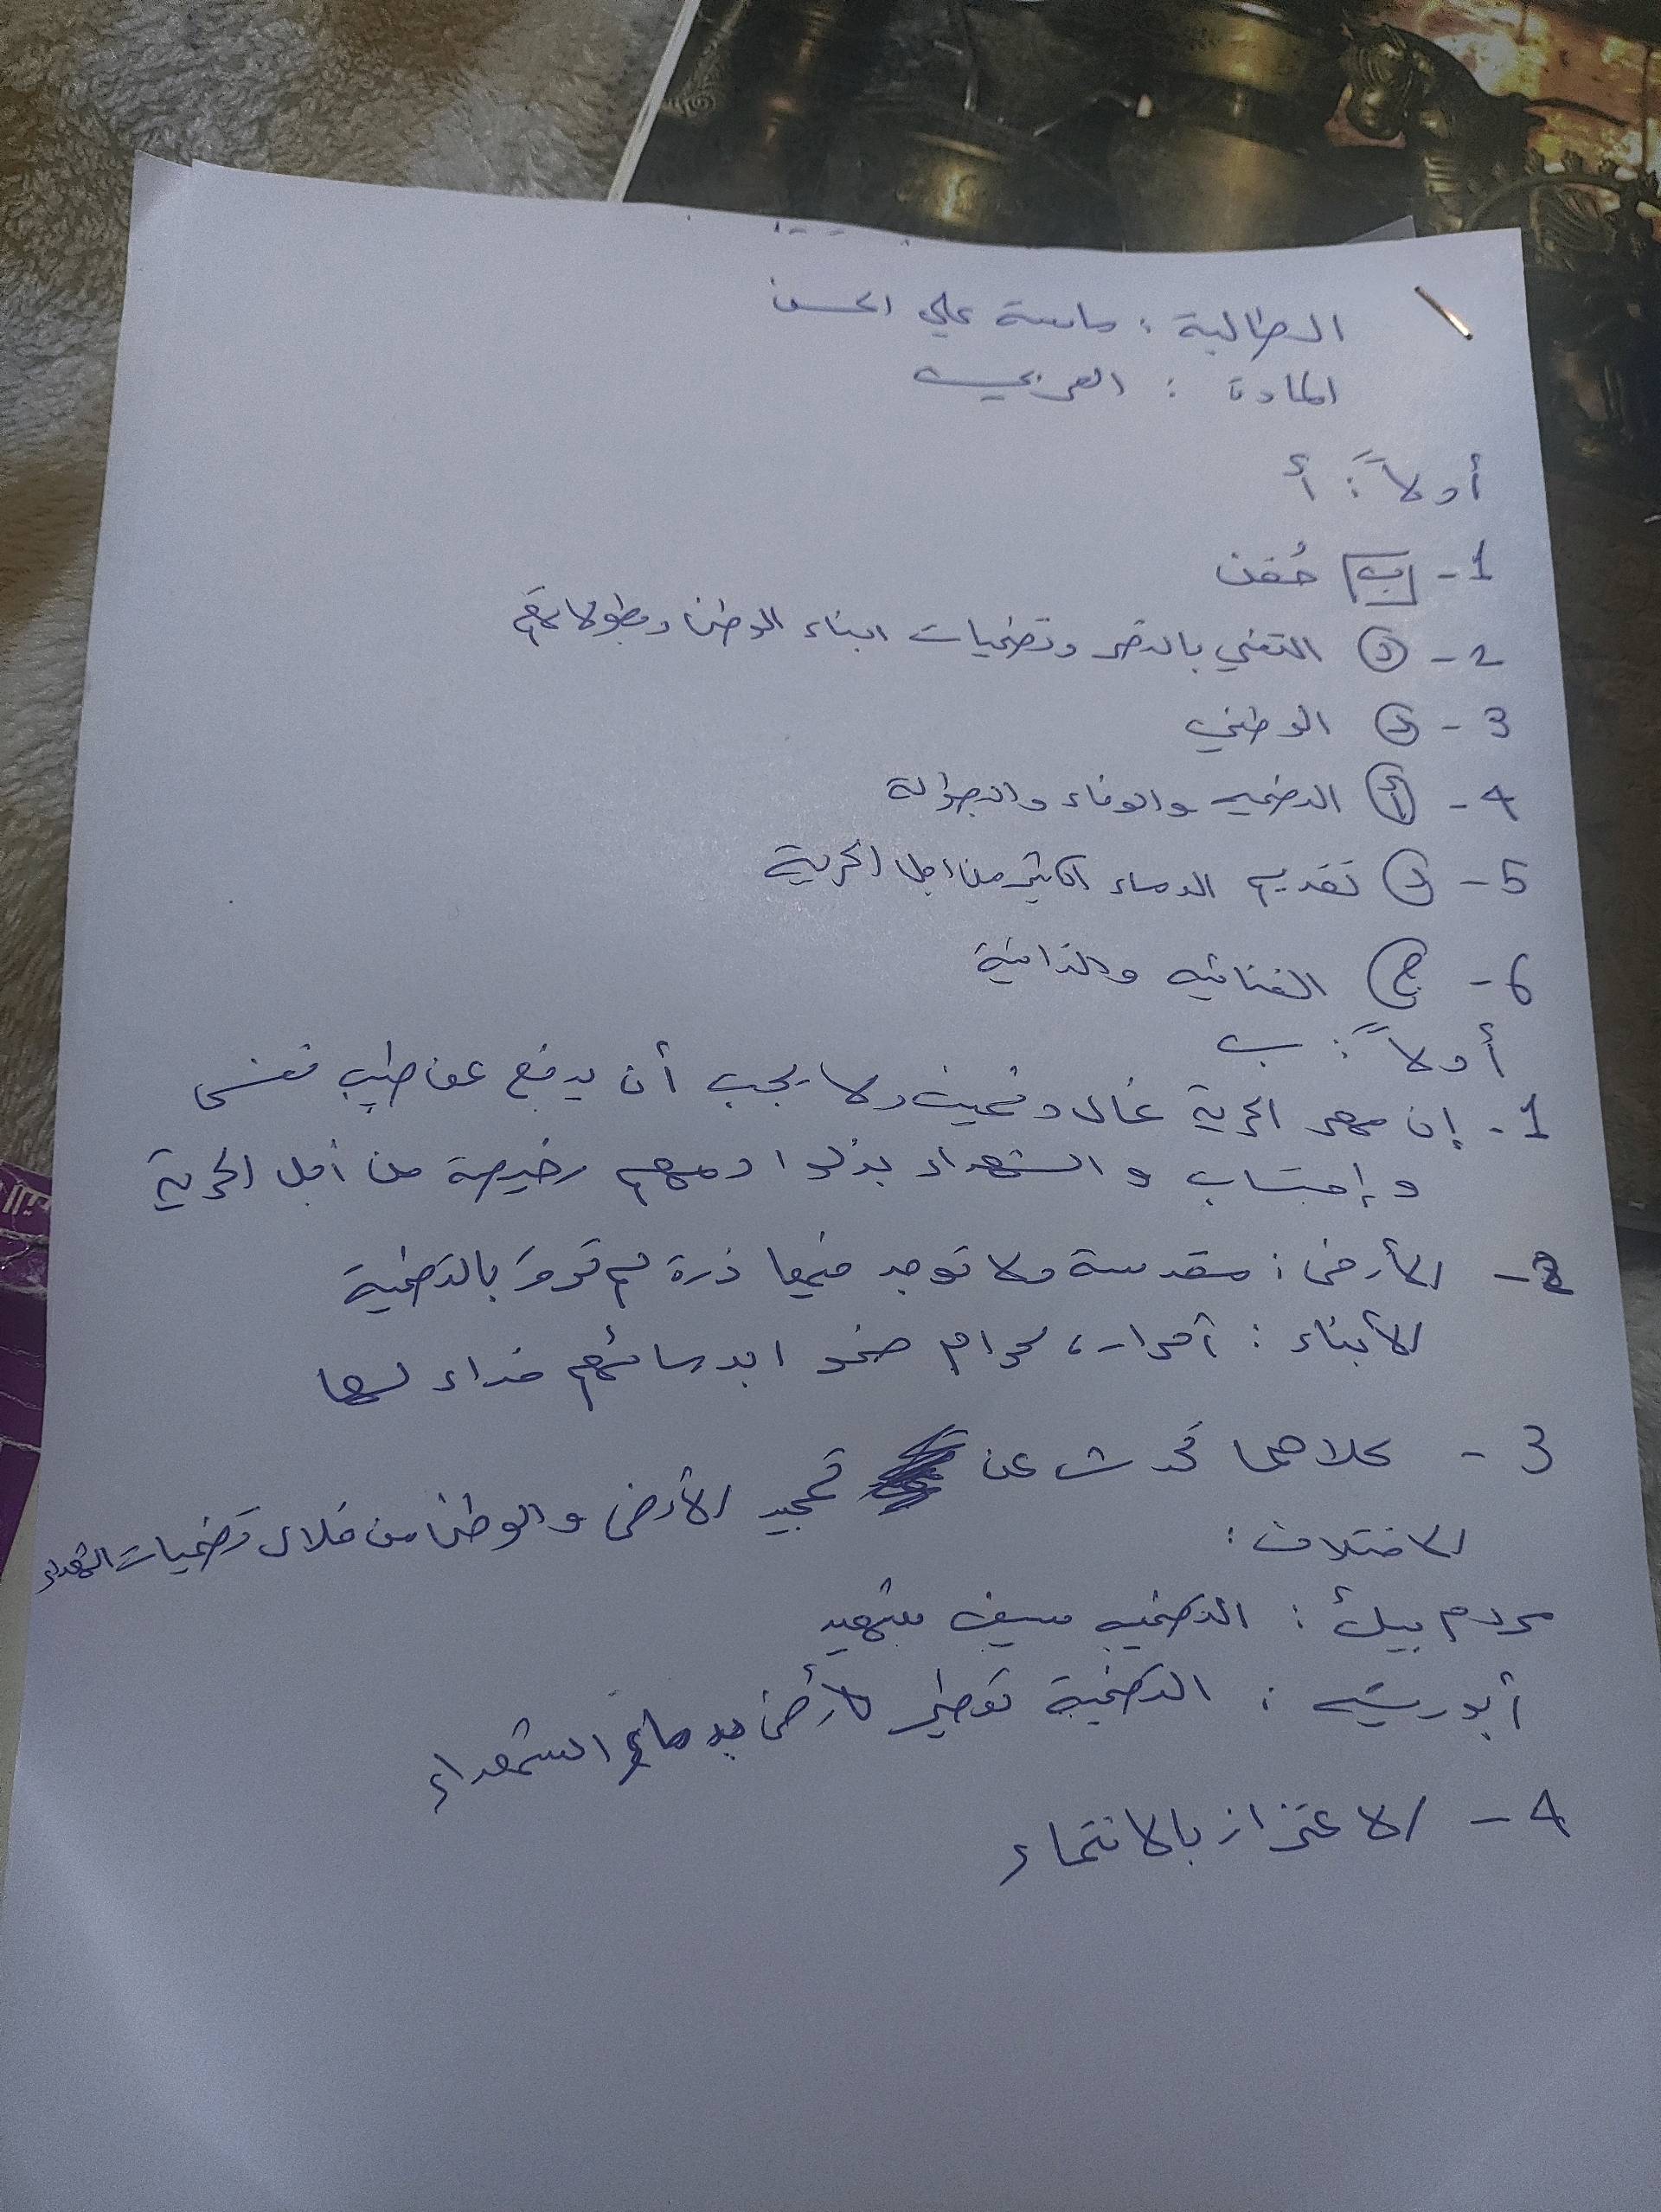 الطالبة : ماسة علي الحسن
المادة : العربي
أولاً : أ
1 - ب حُفن
2 - د التغني بالنصر وتضحيات ابناء الوطن وبطولاتهم
3 - د الوطني
4 - أ التضحيه والوفاء والبطولة
5 - د تقديم الدماء الكثير من اجل الحرية
6 - ج الغنائيه والذاتية
أولاً : ب
1 - إن مهر الحرية غال وثمين ولا يجب أن يدفع عن طيب نفس
و إحتساب و الشهداء بذلوا دمهم رخيصة من أجل الحرية
2 - الأرض : مقدسة ولا توجد فيها ذرة لم تروَ بالتضحية
الأبناء : أحرار، كرام ضحو ابدمائهم فداء لها
3 - كلاهما تحدث عن تمجيد الأرض والوطن من خلال تضحيات الشهداء
الاختلاف :
مردم بيك : التضحيه سيف شهيد
أبوريشه : التضحية تعطير الأرض بدماء الشهداء
4 - الاعتزاز بالانتماء